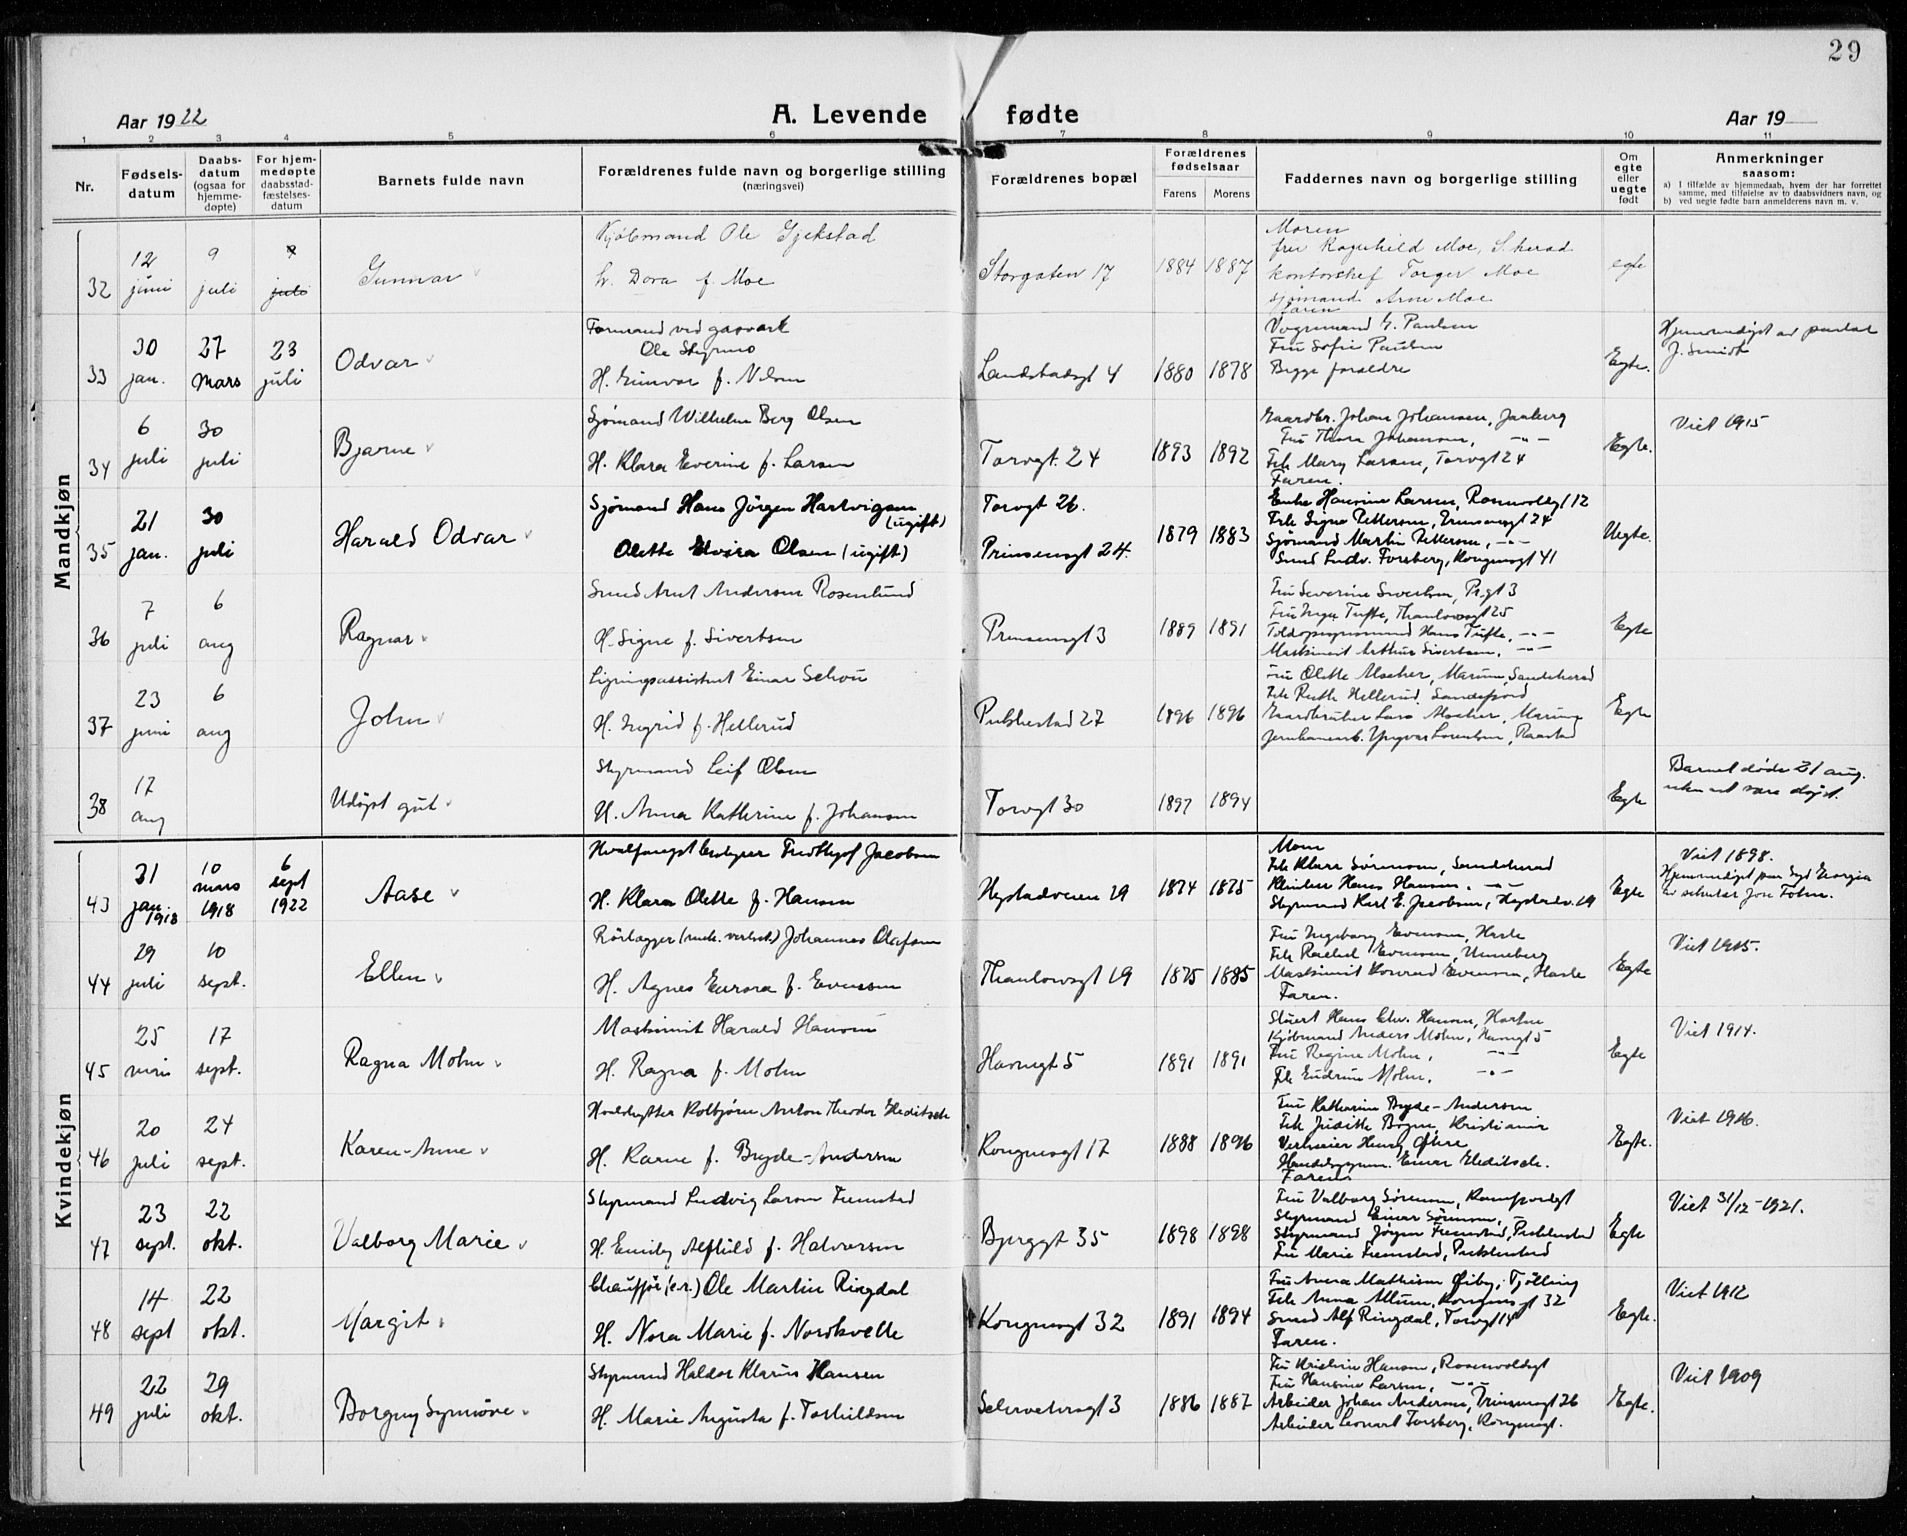 29
Aar 1922
A. Levende fødte
Aar 19
1 2 3 4 5 6 7 8 9 10 11
Nr.
Fødsels-
datum
Daabs-
datum
(ogsaa for
hjemme-
døpte)
For hjem-
medøpte
daabsstad-
fæstelses-
datum
Barnets fulde navn
Forældrenes fulde navn og borgerlige stilling
(næringsvei)
Forældrenes bopæl
Forældrenes
fødselsaar
Farens Morens
Faddernes navn og borgerlige stilling
Om
egte
eller
uegte
født
Anmerkninger
saasom:
a) I tilfælde av hjemmedaab, hvem der har forrettet
samme, med tilføielse av to daabsvidners navn, og
b) ved uegte fødte barn anmelderens navn m. v.
Mandkjøn
32
12
juni
9
juli
9
juli
Gunnar
Kjøbmand Ole Gjekstad
h. Dora f. Moe
Storgaten 17
1884 1887
Moren
fru Ragnhild Moe, S.herad
kontorchef Torger Moe
sjømand Arne Moe
Faren
egte
33
30
jan.
27
mars
23
juli
Odvar
Formand ved gasverk
Ole
H. Gunvor f. Nilsen
Landstadsgt 4
1880 1878
Vognmand G. Paulsen
Fru Sofie Paulsen
Begge forældre
Egte.
Hjemmedøpt av pastor
J. Smidt
34
6
juli
30
juli
Bjarne
Sjømand Wilhelm Berg Olsen
H. Klara Everine f. Larsen
Torvgt. 24
1893 1892
Gaardbr. Johan Johansen, Jaaberg
Fru Thora Johansen, -"-
Frk Mary Larsen, Torvgt 24
Faren.
Egte.
Viet 1915
35
21
jan.
30
juli
Harald Odvar
Sjømand Hans Jørgen Hartvigsen
(ugift)
Olette Elvira Olsen (ugift)
Torvgt 26.
Prinsensgt 24.
1879 1883
Enke Hansine Larsen, Rosenvoldsgt 12
Frk Signe Pettersen, Prinsensgt 24
Sjømand Martin Pettersen, -"-
Smed Ludv. Forsberg, Kongensgt 41
Uegte.
36
7
juli
6
aug
Ragnar
Smed Arnt Andersen Rosenlund
H. Signe f. Sivertsen
Prinsensgt 3
1889 1891
Fru Severine Sivertsen, Pr.gt 3
Fru Inga Tufte, Thaulowsgt 25
Hans Tufte, -"-
Maskinist Arthur Sivertsen, -"-
Egte
37
23
juni
6
aug
John
Ligningsassistent Einar Schou
H. Ingrid f. Hellerud
Pukkestad 27
1896 1896
Fru Olette Aascher, Marum, Sandeherad
Frk Ruth Hellerud, Sandefjord
Gaardbruker Lars Aascher, Marum
Jernbanearb. Yngvar Lorentsen, Raastad
Egte
38
17
aug
Udøpt gut
Styrmand Leif Olsen
H. Anna Kathrine f. Johansen
Torvgt 30
1897 1894
Egte
Barnet døde 21 aug.
uten at være døpt.
Kvindekjøn
43
31
jan.
1918
10
mars
1918
6
sept
1922
Aase
Hvalfangstbestyrer Fridthjof Jacobsen
H. Klara Olette f. Hansen
Hystadveien 29
1874 1875
Moren
Frk Klara Sørensen, Sandeherad
Hans Hansen, -"-
Styrmand Karl E. Jacobsen, Hystadv. 29
Egte
Viet 1898.
Hjemmedøpt paa Syd Georgia
av sekretær Jon Tolm.
44
29
juli
10
sept.
Ellen
Rørlægger (mek. verkst.) Johannes Olafsen
H. Agnes Eurora f. Evensen
Thaulowsgt 19
1875 1885
Fru Ingeborg Evensen, Hasle
Frk Rachel Evensen, Unneberg
Maskinist Konrad Evensen, Hasle
Faren.
Egte
Viet 1915.
45
25
juni
17
sept.
Ragna Mohn
Maskinist Harald Hansen
H. Ragna f. Mohn
Havnegt 5
1891 1891
Stuert Hans Chr. Hansen, Horten
Kjøbmand Anders Mohn, Havnegt 5
Fru Regine Mohn, -"-
Frk Gudrun Mohn. -"-
Egte
Viet 1914.
46
20
juli
24
sept.
Karen-Anne
Hvalskytter Kolbjørn Anton Theodor Gleditsch
H. Karne f. Bryde-Andersen
Kongensgt 17
1888 1896
Fru Katharina Bryde-Andersen
Frk Judith Bogen, Kristiania
Verkseier Henry Øhre
Handelsgym. Einar Gleditsch.
Faren
Egte.
Viet 1916.
47
23
sept.
22
okt.
Valborg Marie
Styrmand Ludvig Larsen Fremstad
H. Emily Alfhild f. Halvorsen
Bjerggt 35
1898 1898
Fru Valborg Sørensen, Ramfjordgt
Styrmand Einar Sørensen, -"-
Styrmand Jørgen Fremstad, Pukkestad
Fru Marie Fremstad, Pukkestad
Egte
Viet 31/12-1921.
48
14
sept
22
okt.
Margit
Chauffør (e.r.) Ole Martin Ringdal
H. Nora Marie f. Nordkvelle
Kongensgt 32
1891 1894
Fru Anna Mathisen Ødby, Tjølling
Frk Anna Allum, Kongensgt 32
Smed Alf Ringdal, Torvgt 14
Faren.
Egte.
Viet 1912
49
22
juli
29
okt.
Borgny Synnøve
Styrmand Haldor Klarius Hansen
H. Marie Augusta f. Torkildsen
3
1886 1887
Fru Kristine Hansen, Rosenvoldsgt
Fru Hansine Larsen, -"-
Arbeider Johan Andersen, Prinsensgt 26
Arbeider Leonart Forsberg, Kongensgt.
Egte.
Viet 1909